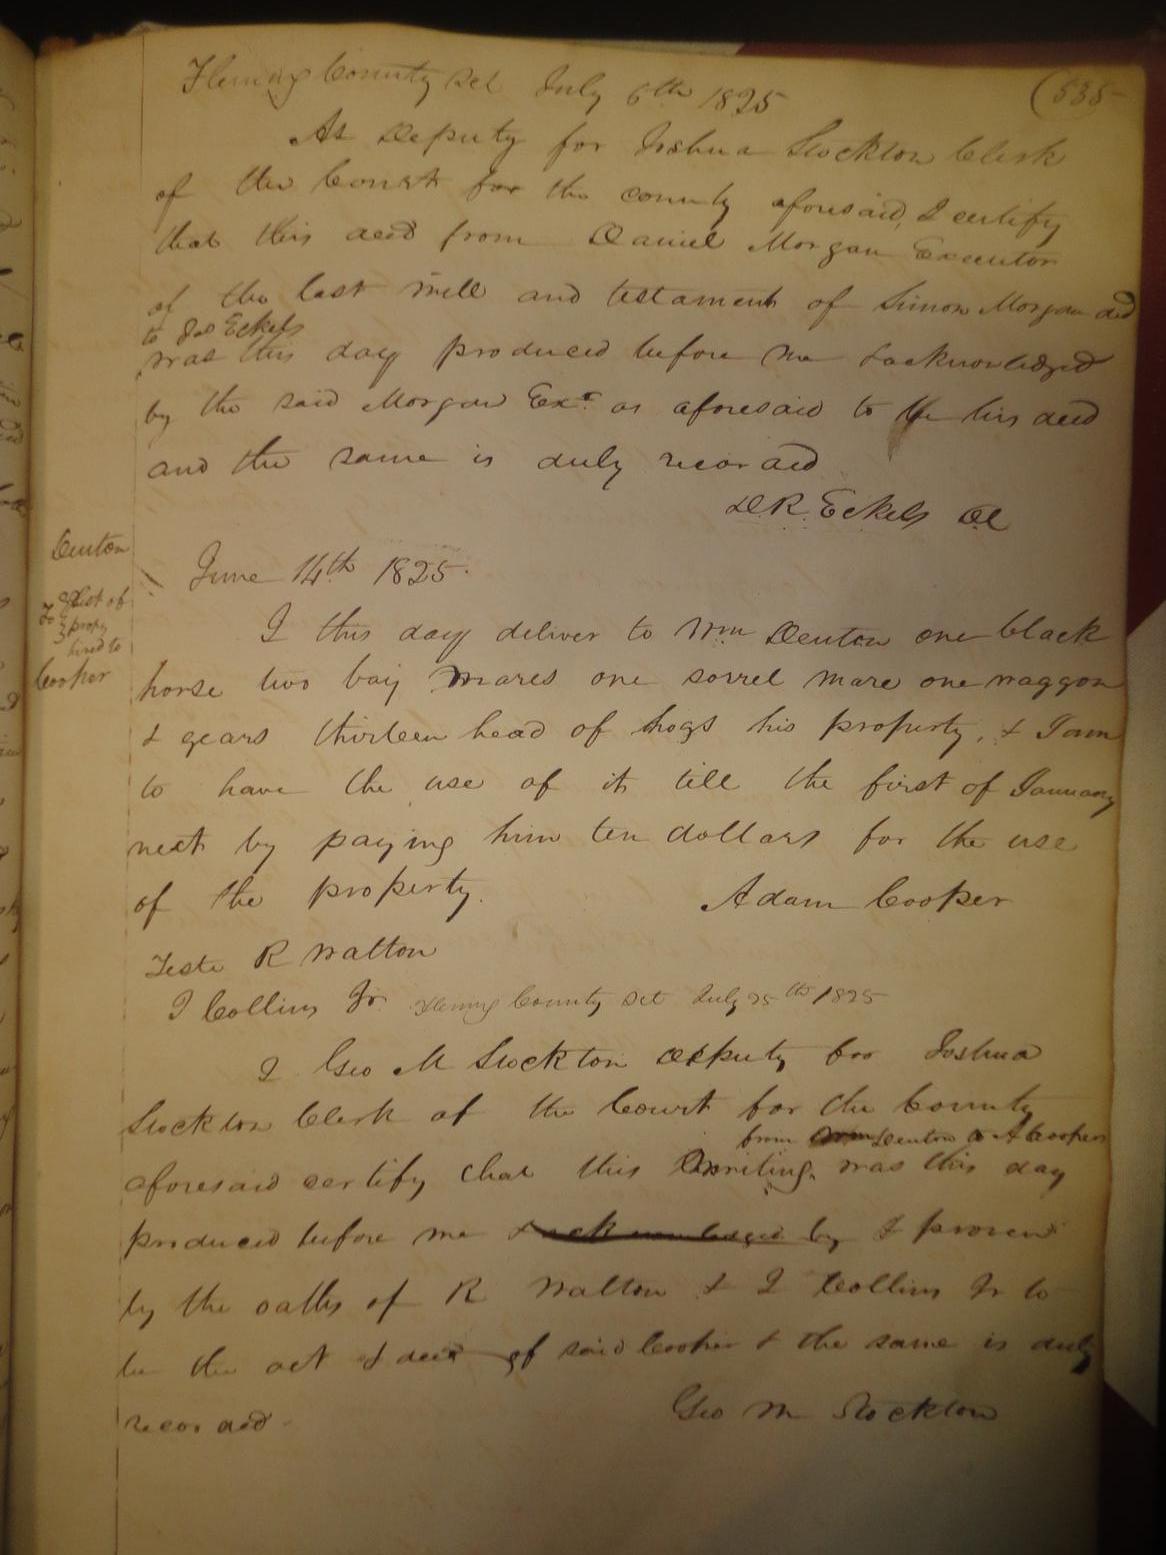 (535
Fleming County Sct July 6th 1825
As Deputy for Joshua Stockton Clerk
of the Court for the county aforesaid, I certify
that this deed from Daniel Morgan Executor
of the last will and testament of Simon Morgan decd
to Jas Eckels
was this day produced before me & acknowledged
by the said Morgan Exr as aforesaid to be his deed
and the same is duly recorded
D. R. Eckels DC
Denton
To } List of
propy
hired to
Cooper
June 14th 1825.
I this day deliver to Wm Denton one black
horse two bay mares one sorrel mare one waggon
& gears thirteen head of hogs his property, & I am
to have the use of it till the first of January
next by paying him ten dollars for the use
of the property. Adam Cooper
Teste R Walton
I Collins Jr. Fleming County Sct July 25th 1825
I Geo M Stockton deputy for Joshua
Stockton Clerk of the Court for the County
from Denton to A Cooper
aforesaid certify that this writing was this day
produced before me & acknowledged by & proven
by the oaths of R Walton & I Collins Jr to
be the act & deed of said Cooper & the same is duly
recorded.
Geo M Stockton